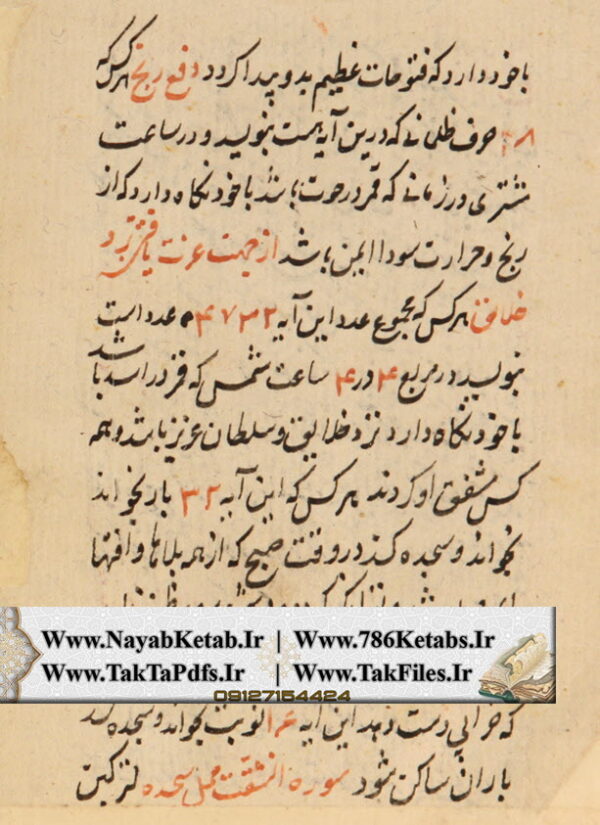 با خود دارد که فتوحات عظیم بدو پیدا کردد دفع رنج هر کس که
۲۸ حرف ظلمانی که درین آیه هست بنویسد و در ساعت
مشتری در زمانی که قمر در حوت باشد با خود نکاه دارد که از
رنج و حرارت سودا ایمن باشد از جهت عزت یافتن نزد
خلایق هر کس که مجموع عدد این آیه ۴۷۳۲ عدد است
بنویسد در مربع ۴ در ۴ ساعت شمس که قمر در اسد باشد
با خود نکاه دارد نزد خلایق و سلطان عزیز باشد و همه
کس مشفق او کردند هر کس که این آیه ۳۲ بار بخواند
بخواند و سجده کند در وقت صبح که از همه بلاها و افتها
Www.NayabKetab.Ir | Www.786Ketabs.Ir
Www.TakTaPdfs.Ir | Www.TakFiles.Ir
09127154424
که خرابی دست دهد این آیه نوبت بخواند و سجده کند
باران ساکن شود سوره انشقت محل سجده لترکبن